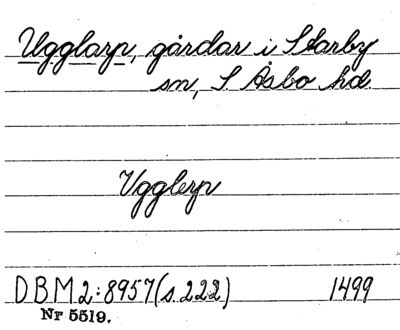 Ugglarp, gårdar i Starby
sn, S. Åsbo hd.
Ugglerp
DBM 2:8957 (s. 222) 1499
Nr 5519.